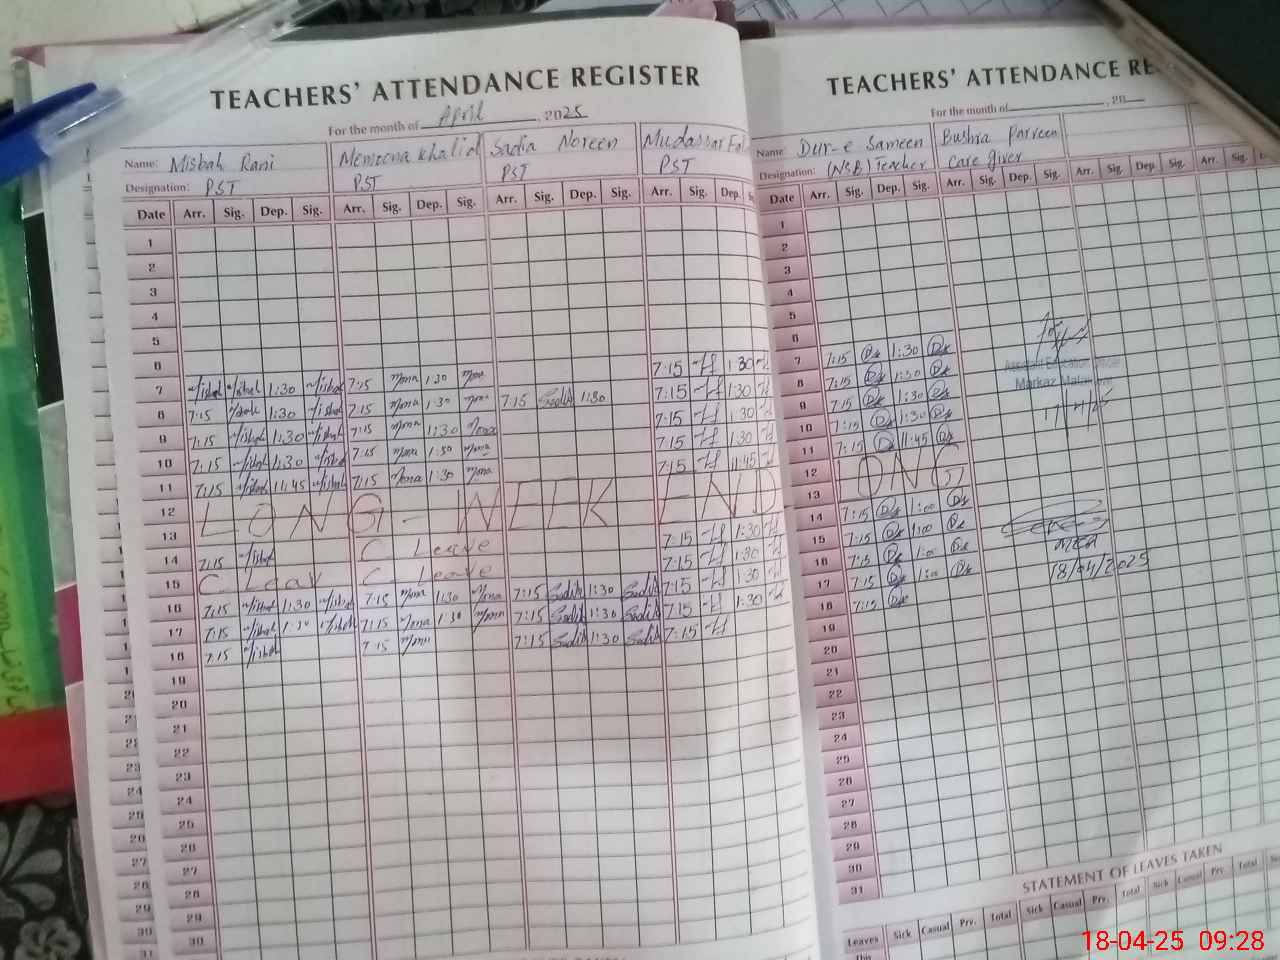 TEACHERS' ATTENDANCE REGISTER
For the month of April, 2025
Name: Misbah Rani Memoona Khalid Sadia Noreen Mudassar
Designation: PST PST PST PST
Date Arr. Sig. Dep. Sig. Arr. Sig. Dep. Sig. Arr. Sig. Dep. Sig. Arr. Sig. Dep.
1
2
3
4
5
6
7 Misbah Misbah 1:30 Misbah 7:15 Mona 1:30 Mona 7:15 1:30
8 7:15 Misbah 1:30 Misbah 7:15 Mona 1:30 Mona 7:15 Sadia 1:30 7:15 1:30
9 7:15 Misbah 1:30 Misbah 7:15 Mona 1:30 Mona 7:15 1:30
10 7:15 Misbah 1:30 Misbah 7:15 Mona 1:30 Mona 7:15 1:30
11 7:15 Misbah 11:45 Misbah 7:15 Mona 1:30 Mona 7:15 11:45
12 LONG - WEEK END
13
14 7:15 Misbah C Leave 7:15 1:30
15 C. Leav C Leave 7:15 1:30
16 7:15 Misbah 1:30 Misbah 7:15 Mona 1:30 Mona 7:15 Sadia 1:30 Sadia 7:15 1:30
17 7:15 Misbah 1:30 Misbah 7:15 Mona 1:30 Mona 7:15 Sadia 1:30 Sadia 7:15 1:30
18 7:15 Misbah 7:15 Mona 7:15 Sadia 1:30 Sadia 7:15
19
20
21
22
23
24
25
26
27
28
29
30
31
TEACHERS' ATTENDANCE RE
For the month of , 20
Name: Dur-e Sameen Bushra Parveen
Designation: (NSB) Teacher Care giver
Date Arr. Sig. Dep. Sig. Arr. Sig. Dep. Sig. Arr. Sig. Dep. Sig. Arr.
1
2
3
4
5
6
7 7:15 Ds 1:30 Ds
8 7:15 Ds 1:30 Ds
9 7:15 Ds 1:30 Ds
10 7:15 Ds 1:30 Ds
11 7:15 Ds 11:45 Ds
12 LONG
13
14 7:15 Ds 1:00 Ds
15 7:15 Ds 1:00 Ds
16 7:15 Ds 1:00 Ds
17 7:15 Ds 1:00 Ds
18 7:15 Ds
19
20
21
22
23
24
25
26
27
28
29
30
31
Markaz
17/4/25
MEA
18/04/2025
STATEMENT OF LEAVES TAKEN
Leaves Sick Casual Prv. Total Sick Casual Prv. Total Sick Casual Prv. Total
This
18-04-25 09:28